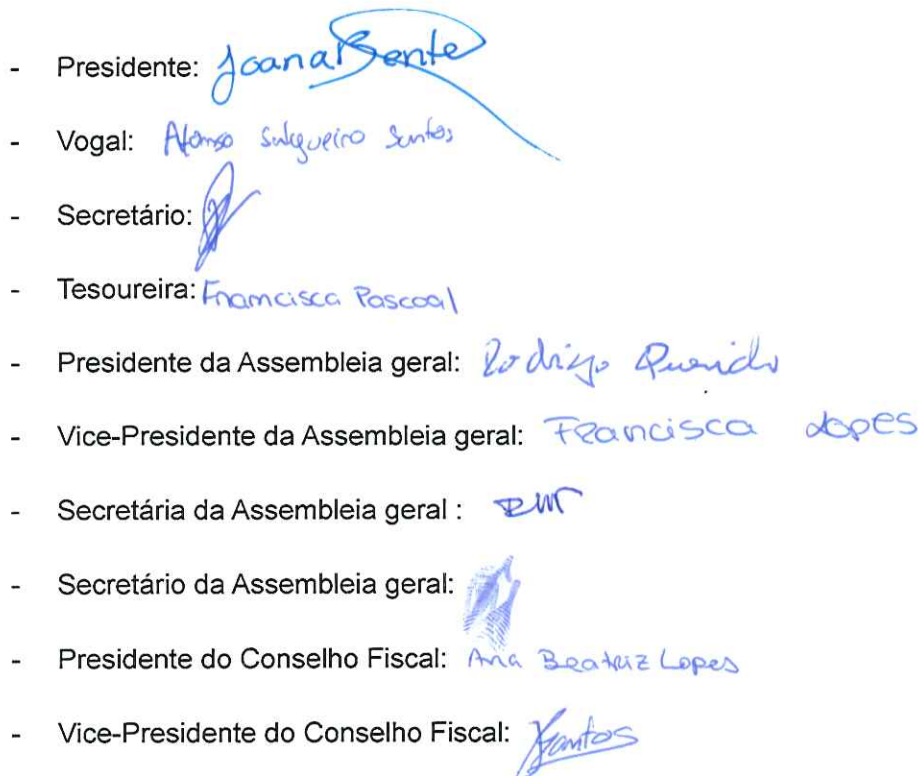 - Presidente: Joana Bente
- Vogal: Afonso Salgueiro Santos
- Secretário:
- Tesoureira: Francisca Pascoal
- Presidente da Assembleia geral: Rodrigo Querido
- Vice-Presidente da Assembleia geral: Francisca Lopes
- Secretária da Assembleia geral :
- Secretário da Assembleia geral:
- Presidente do Conselho Fiscal: Ana Beatriz Lopes
- Vice-Presidente do Conselho Fiscal: Santos